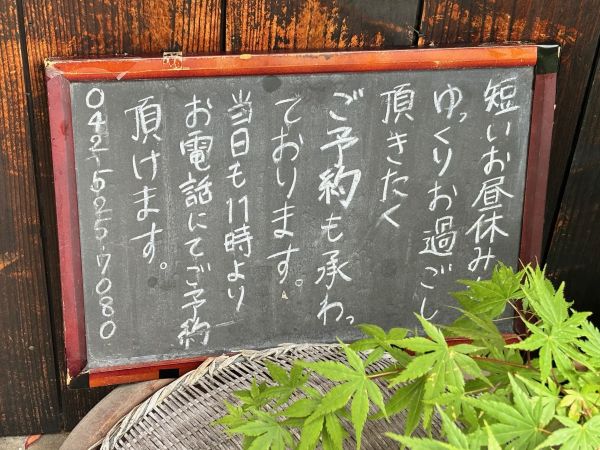 短いお昼休み
ゆっくりお過ごし
頂きたく
ご予約も承わっ
ております。
当日も11時より
お電話にてご予約
頂けます。
042-525-7080